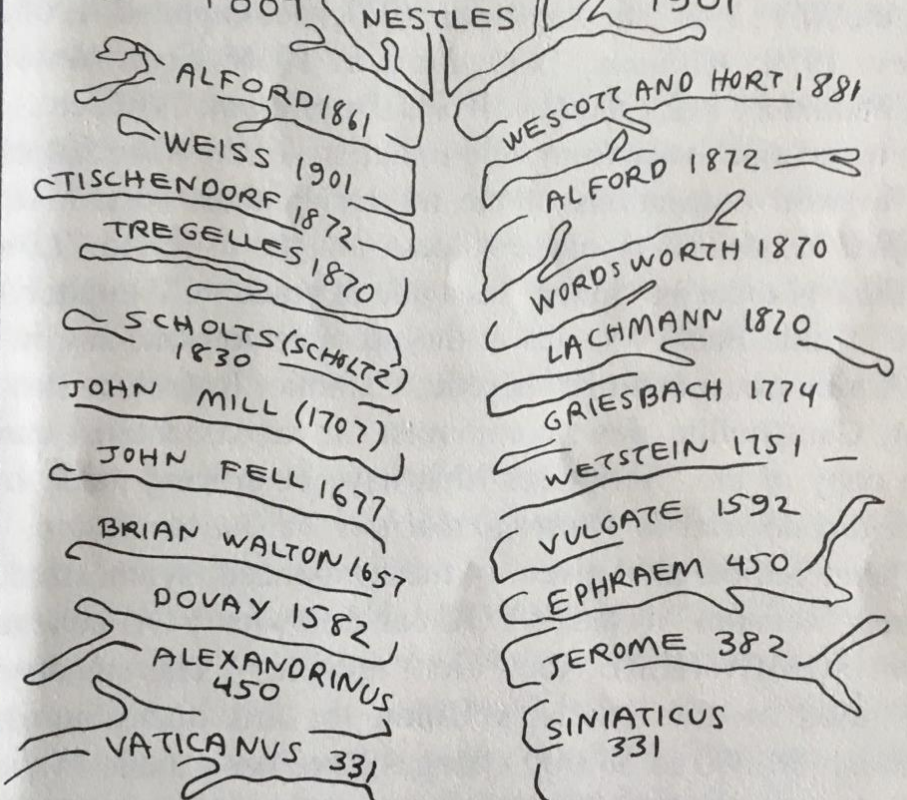 NESTLES
ALFORD 1861
WEISS
1901
TISCHENDORF 1872
TREGELLES 1870
SCHOLTS (SCHOLTZ)
1830
JOHN MILL (1707)
JOHN FELL 1677
BRIAN WALTON 1657
DOVAY 1582
ALEXANDRINUS
450
VATICANUS 331
WESCOTT AND HORT 1881
ALFORD 1872
WORDSWORTH 1870
LACHMANN 1820
GRIESBACH 1774
WETSTEIN 1751
VULGATE 1592
EPHRAEM 450
JEROME 382
SINIATICUS
331